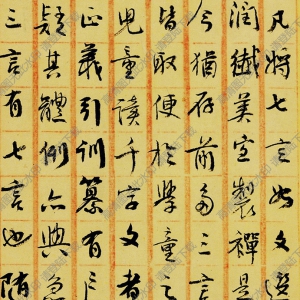 凡將七言如文選
潤纖美宜製禪是
今猶存前多三言
皆取便於學童之
兒童讀千字文者
正義引訓纂有戶
疑其體例亦與急
三言有七言也随